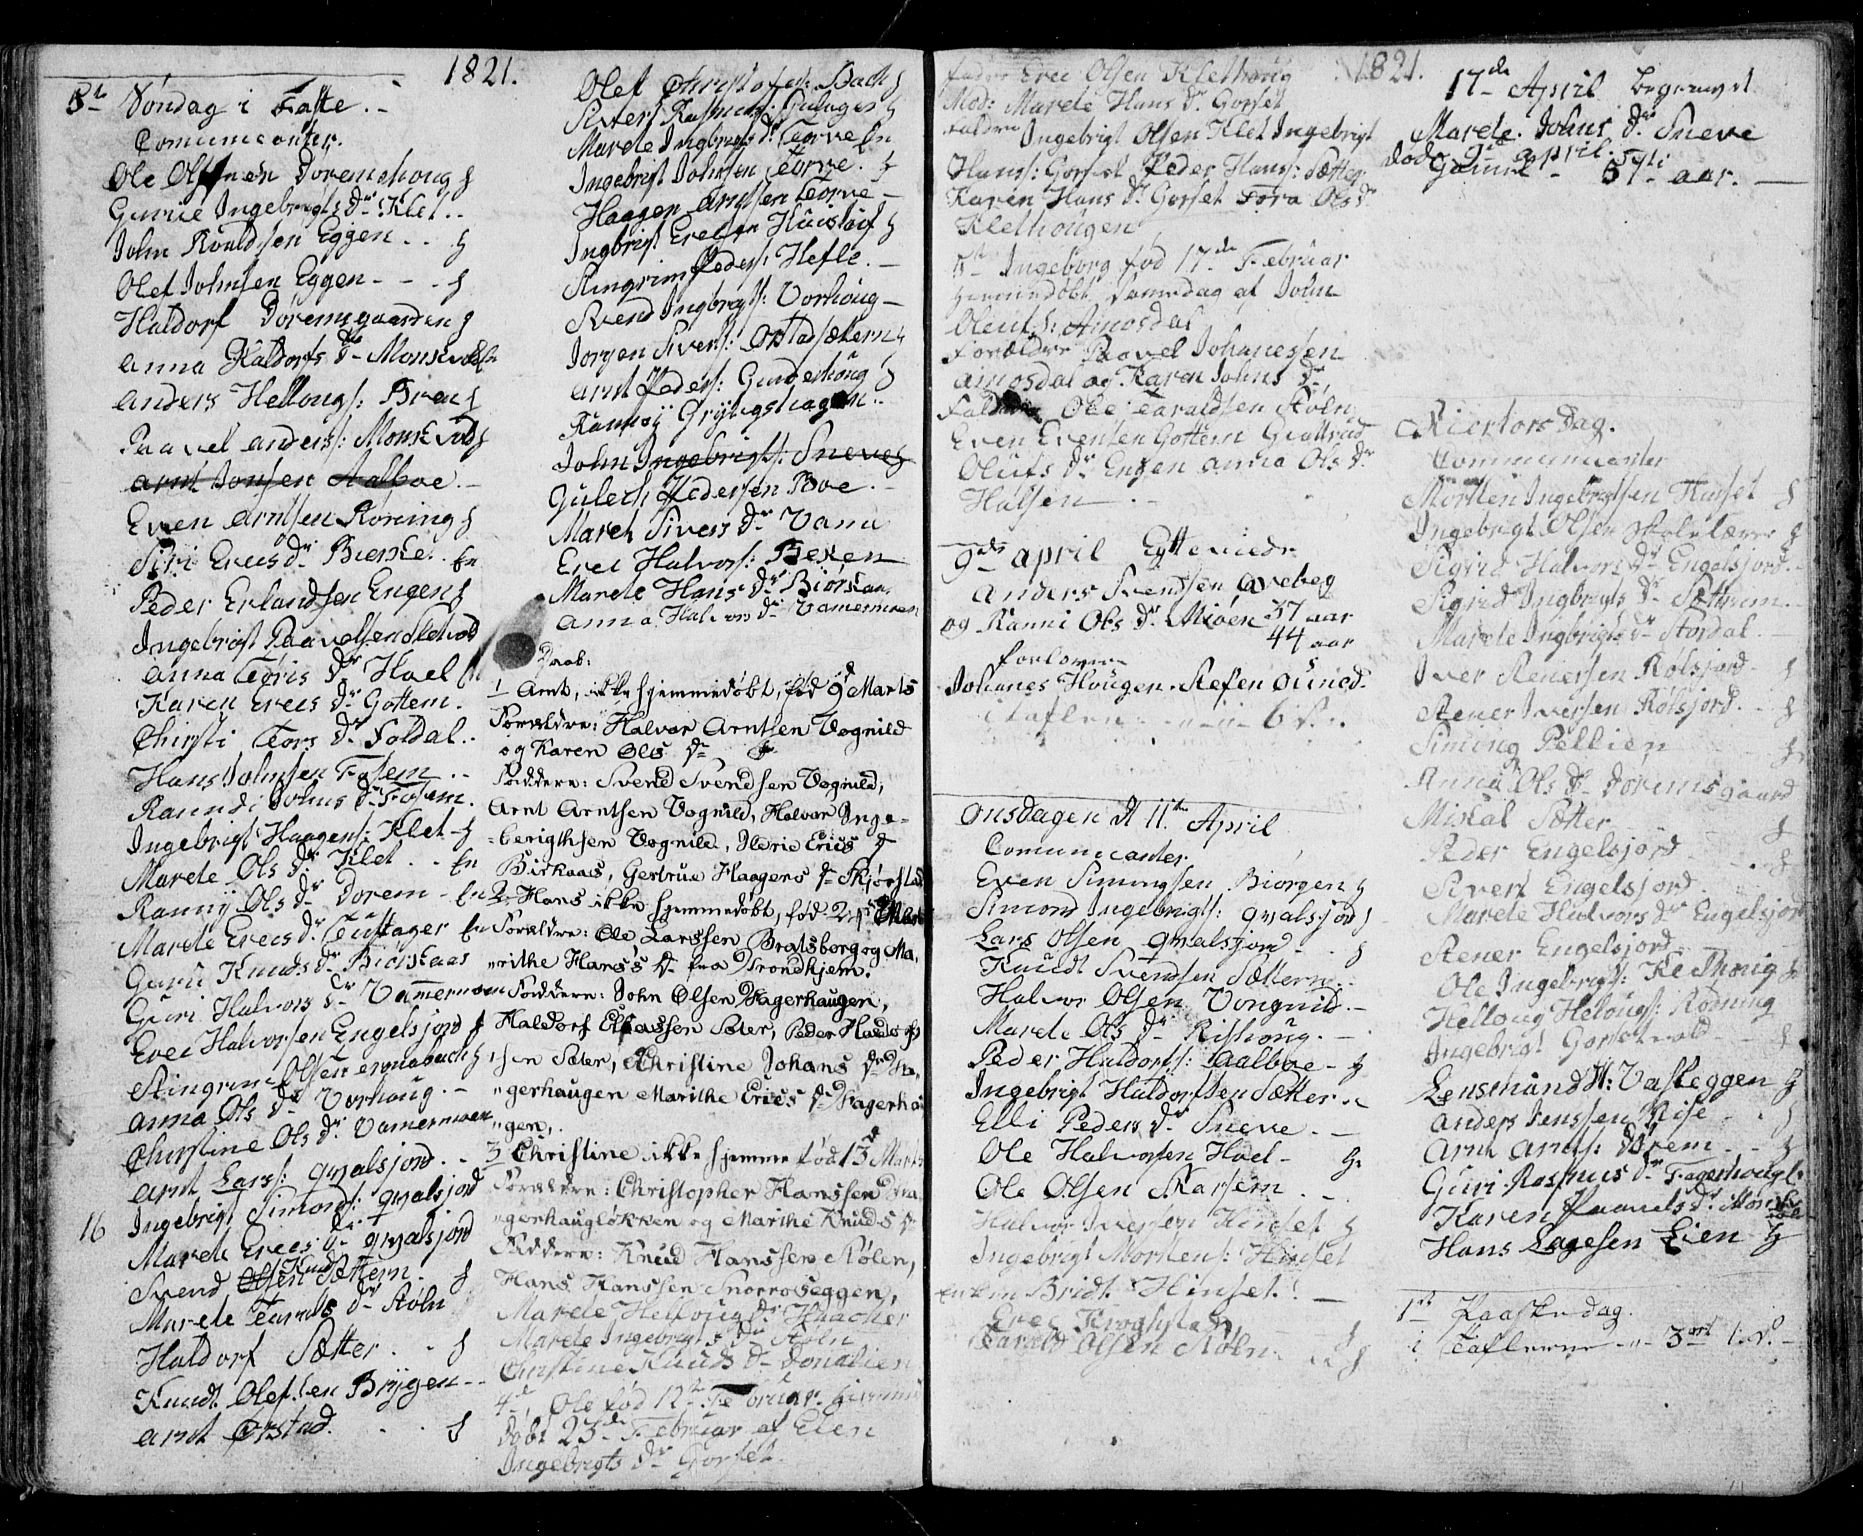 1821.
5te Søndag i Faste.
Comunicanter.
Ole Olsen Doremshoug
Gurie Ingebrigts Dr Klet
John Roaldsen Eggen
Olef Johnsen Eggen
Haldorf Doremsgaarden
Anna Haldorfs Dr
Anders Hellougs: Bren
Paavel Anders:
Arnt Jonsen Aalboe
Even Arntsen Roning
Siri Erics Dr Bierke. En
Peder Erlandsen Engen
Ingebrigt Paavelsen Sletvold
Anna Toris Dr Hoel
Karen Erecs Dr Gottem.
Chirsti Tors Dr Foldal
Hans Johnsen Fosem
Ranndi Johns Dr Fosem.
Ingebrigt Haagens: Klet
Marete Ols Dr Klet. En
Ranny Ols Dr Dorem En
Marete Erecs Dr En
Guru Knuds Dr Biørkaas
Guri Halvors Dr Vammervoen
Erec Halvorsen Engelsjord
Stingrim Olsen
Anna Ols Dr Vorhoug.
Christine Ols Dr Vamervoen
Arnt Lars: Qvalsjord
Ingebrigt Simons: Qvalsjord
16 Marete Erecs Dr Qvalsjord
Knud
Svend Olsen Settem.
Marete Taralds Dr Støln
Haldorf Sætter
Knudt Olefsen Brygen
Arnt Ørstad.
Olef Christofs: Bach
Sivert Rasmus:
Marete Ingbrigts Dr Torve En
Ingebrigt Johnsen Torve.
Haagen Arntsen Torve
Ingbrigt Erecsen
Stingrim Peders: Hefle.
Svend Ingbrigts: Vorhoug
Jorgen Sivers: Ørstadsætern
Arnt Peders: Gunderhoug
Rannoy Grytingshagen
John Ingebrigts: Sneve
Gulech Pedersen Boe
Maret Sivers Dr Vann
Erec Halvors: Bexen
Marete Hans Dr Biorkaas
Anna Halvors Dr Vamervoen
Daab:
1 Arnt, ikke hjemmedøbt, fød 9d Marts
Forældre: Halvor Arntsen Vognild
og Karen Ols Dr
Faddere: Svend Svendsen Vognild,
Arnt Arntsen Vognild, Halvor Inge-
-berigthsen Vognild, Marie Erics Dr
Birkaas, Gertrue Haagens Dr Skjørstad
2 Hans ikke hjemmedøbt, fød
Forældre: Ole Larssen Bratsborg og Ma-
"rithe Hans's Dr fra Trondhjem.
Faddere: John Olsen Fagerhaugen,
Haldorf Eliassen Sæter, Peder Haldorf-
"sen Sæter, Christine Johans Dr Fa-
"gerhaugen Marithe Erics Dr Fagerhau
"gen.
3 Christine ikke hjemme fød 13d Marts
Forældre: Christopher Hanssen Fa-
"gerhaugløkken og Marithe Knuds Dr
Faddere: Knud Hanssen Stølen,
Hans Hanssen Snorroseggen,
Marete Hellougs Dr
Marete Ingebrigts Dr Støln
Christine Knuds Dr Donalien
4de, Ole fød 12te Februar. hjemme
døbt 23de Februar af Elen
Ingebrigts Dr Gorset.
1821.
fader Erec Olsen Klethoug
Mod: Marete Hans Dr Gorset
faddre Ingebrigt Olsen Klet Ingebrigt
Hans: Gorset Peder Hans: Sætter
Karen Hans Dr Gorset Tora Ols Dr
Klethougen
5te Ingeborg fød 17de Februar
hjemmedøbt samedag af John
Olufs: Amosdal
Forældre Paavel Johanessen
Amosdal og Karen Johns Dr,
Fadd Ole Taraldsen Støln
Even Evensen Gottem Gialtrud
Olufs Dr Engen Anna Ols Dr
Halsen
9de April Egteviede
Anders Svendsen Øvebeg
37 aar
og Ranni Ols Dr Mioen
44 aar
forlovere
Johanes Hougen. Stefen Ouned
i Taflen 6
Onsdagen d 11te April
Comunicanter
Even Simingsen Biørgen
Simond Ingebrigts: Qvalsjord
Lars Olsen Qvalsjord
Knudt Svendsen Sættern
Halvor Olsen Vongnild
Marete Ols Dr Rishoug.
Peder Haldorfs: Aalboe
Ingebrigt Haldorfsen Sætter
Elli Peders Dr Sneve
Ole Halvorsen Hoel
Ole Olsen Karsem
Halvor Iversen Hinset
Ingebrigt Mortens: Hinset
enken Bridt Hinset
Erec Krogstad
Tarald Olsen Støln
17de April begravet
Marete Johns Dr Sneve
døde 9de april.
Gamel 57 aar.
Skiertorsdag.
Communicanter
Morten Ingebrigtsen Hinset
Ingebrigt Olsen Skolelærer
Sigrid Halvors Dr Engelsjord
Sigrid Ingbrigts Dr Sættrem
Marete Ingbrigts Dr Stordal
Iver Stenersen Rølsjord
Stener Iversen Rølsjord
Siming Pellien
Anna Ols Dr Doremsgaard
Miskal Sætter
Peder Engelsjord
Sivert Engelsjord
Marete Halvors Dr Engelsjord
Stener Engelsjord
Ole Ingebrigts: Klethoug
Helloug Hellougs: Rodning
Ingebrigt Gorsetvold
Lensmand H: Vasteggen
Anders Jenssen Rise
Arnt Arnts: Dorem
Guri Rasmus Dr Fagerhougl
Karen Paavels Dr
Hans Lagesen Lien
1ste Paaskedag.
i Taflerne 3 ort